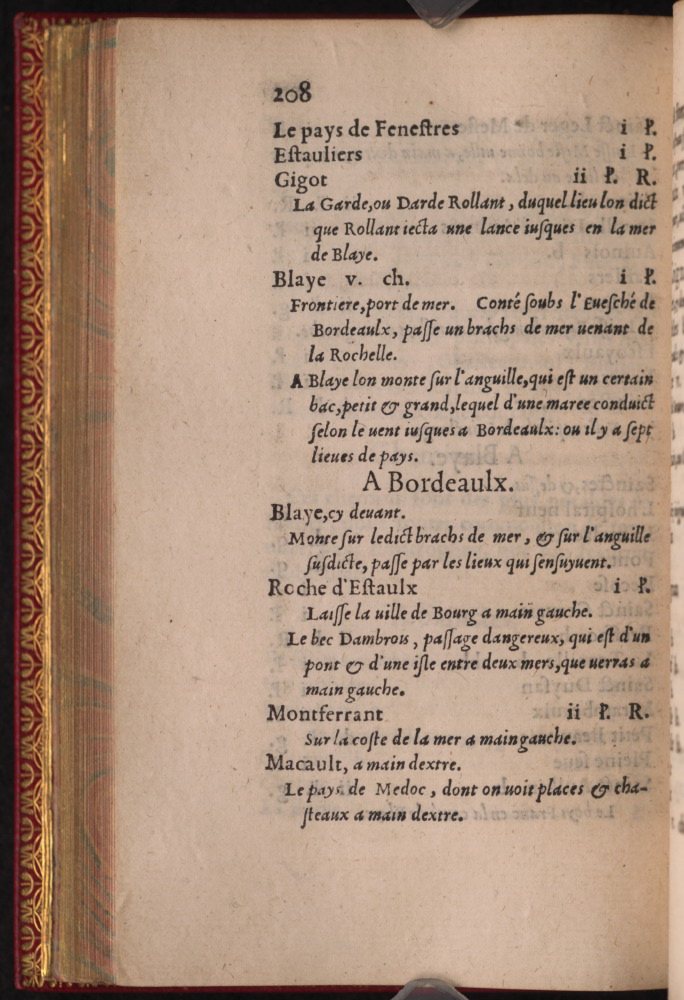 208
Le pays de Feneſtres i P.
Eſtauliers i P.
Gigot ii P. R.
La Garde,ou Darde Rollant, duquel lieu lon dict
que Rollant iecta une lance iuſques en la mer
de Blaye.
Blaye v. ch. i P.
Frontiere,port de mer. Conté ſoubs l'Eueſché de
Bordeaulx, paſſe un brachs de mer uenant de
la Rochelle.
A Blaye lon monte ſur l'anguille,qui eſt un certain
bac,petit & grand,lequel d'une maree conduict
ſelon le uent iuſques a Bordeaulx: ou il y a ſept
lieues de pays.
A Bordeaulx.
Blaye,cy deuant.
Monte ſur ledict brachs de mer, & ſur l'anguille
ſuſdicte, paſſe par les lieux qui ſenſuyuent.
Roche d'Eſtaulx i P.
Laiſſe la uille de Bourg a main gauche.
Le bec Dambrois, paſſage dangereux, qui eſt d'un
pont & d'une iſle entre deux mers,que uerras a
main gauche.
Montferrant ii P. R.
Sur la coſte de la mer a main gauche.
Macault, a main dextre.
Le pays de Medoc, dont on uoit places & cha-
ſteaux a main dextre.